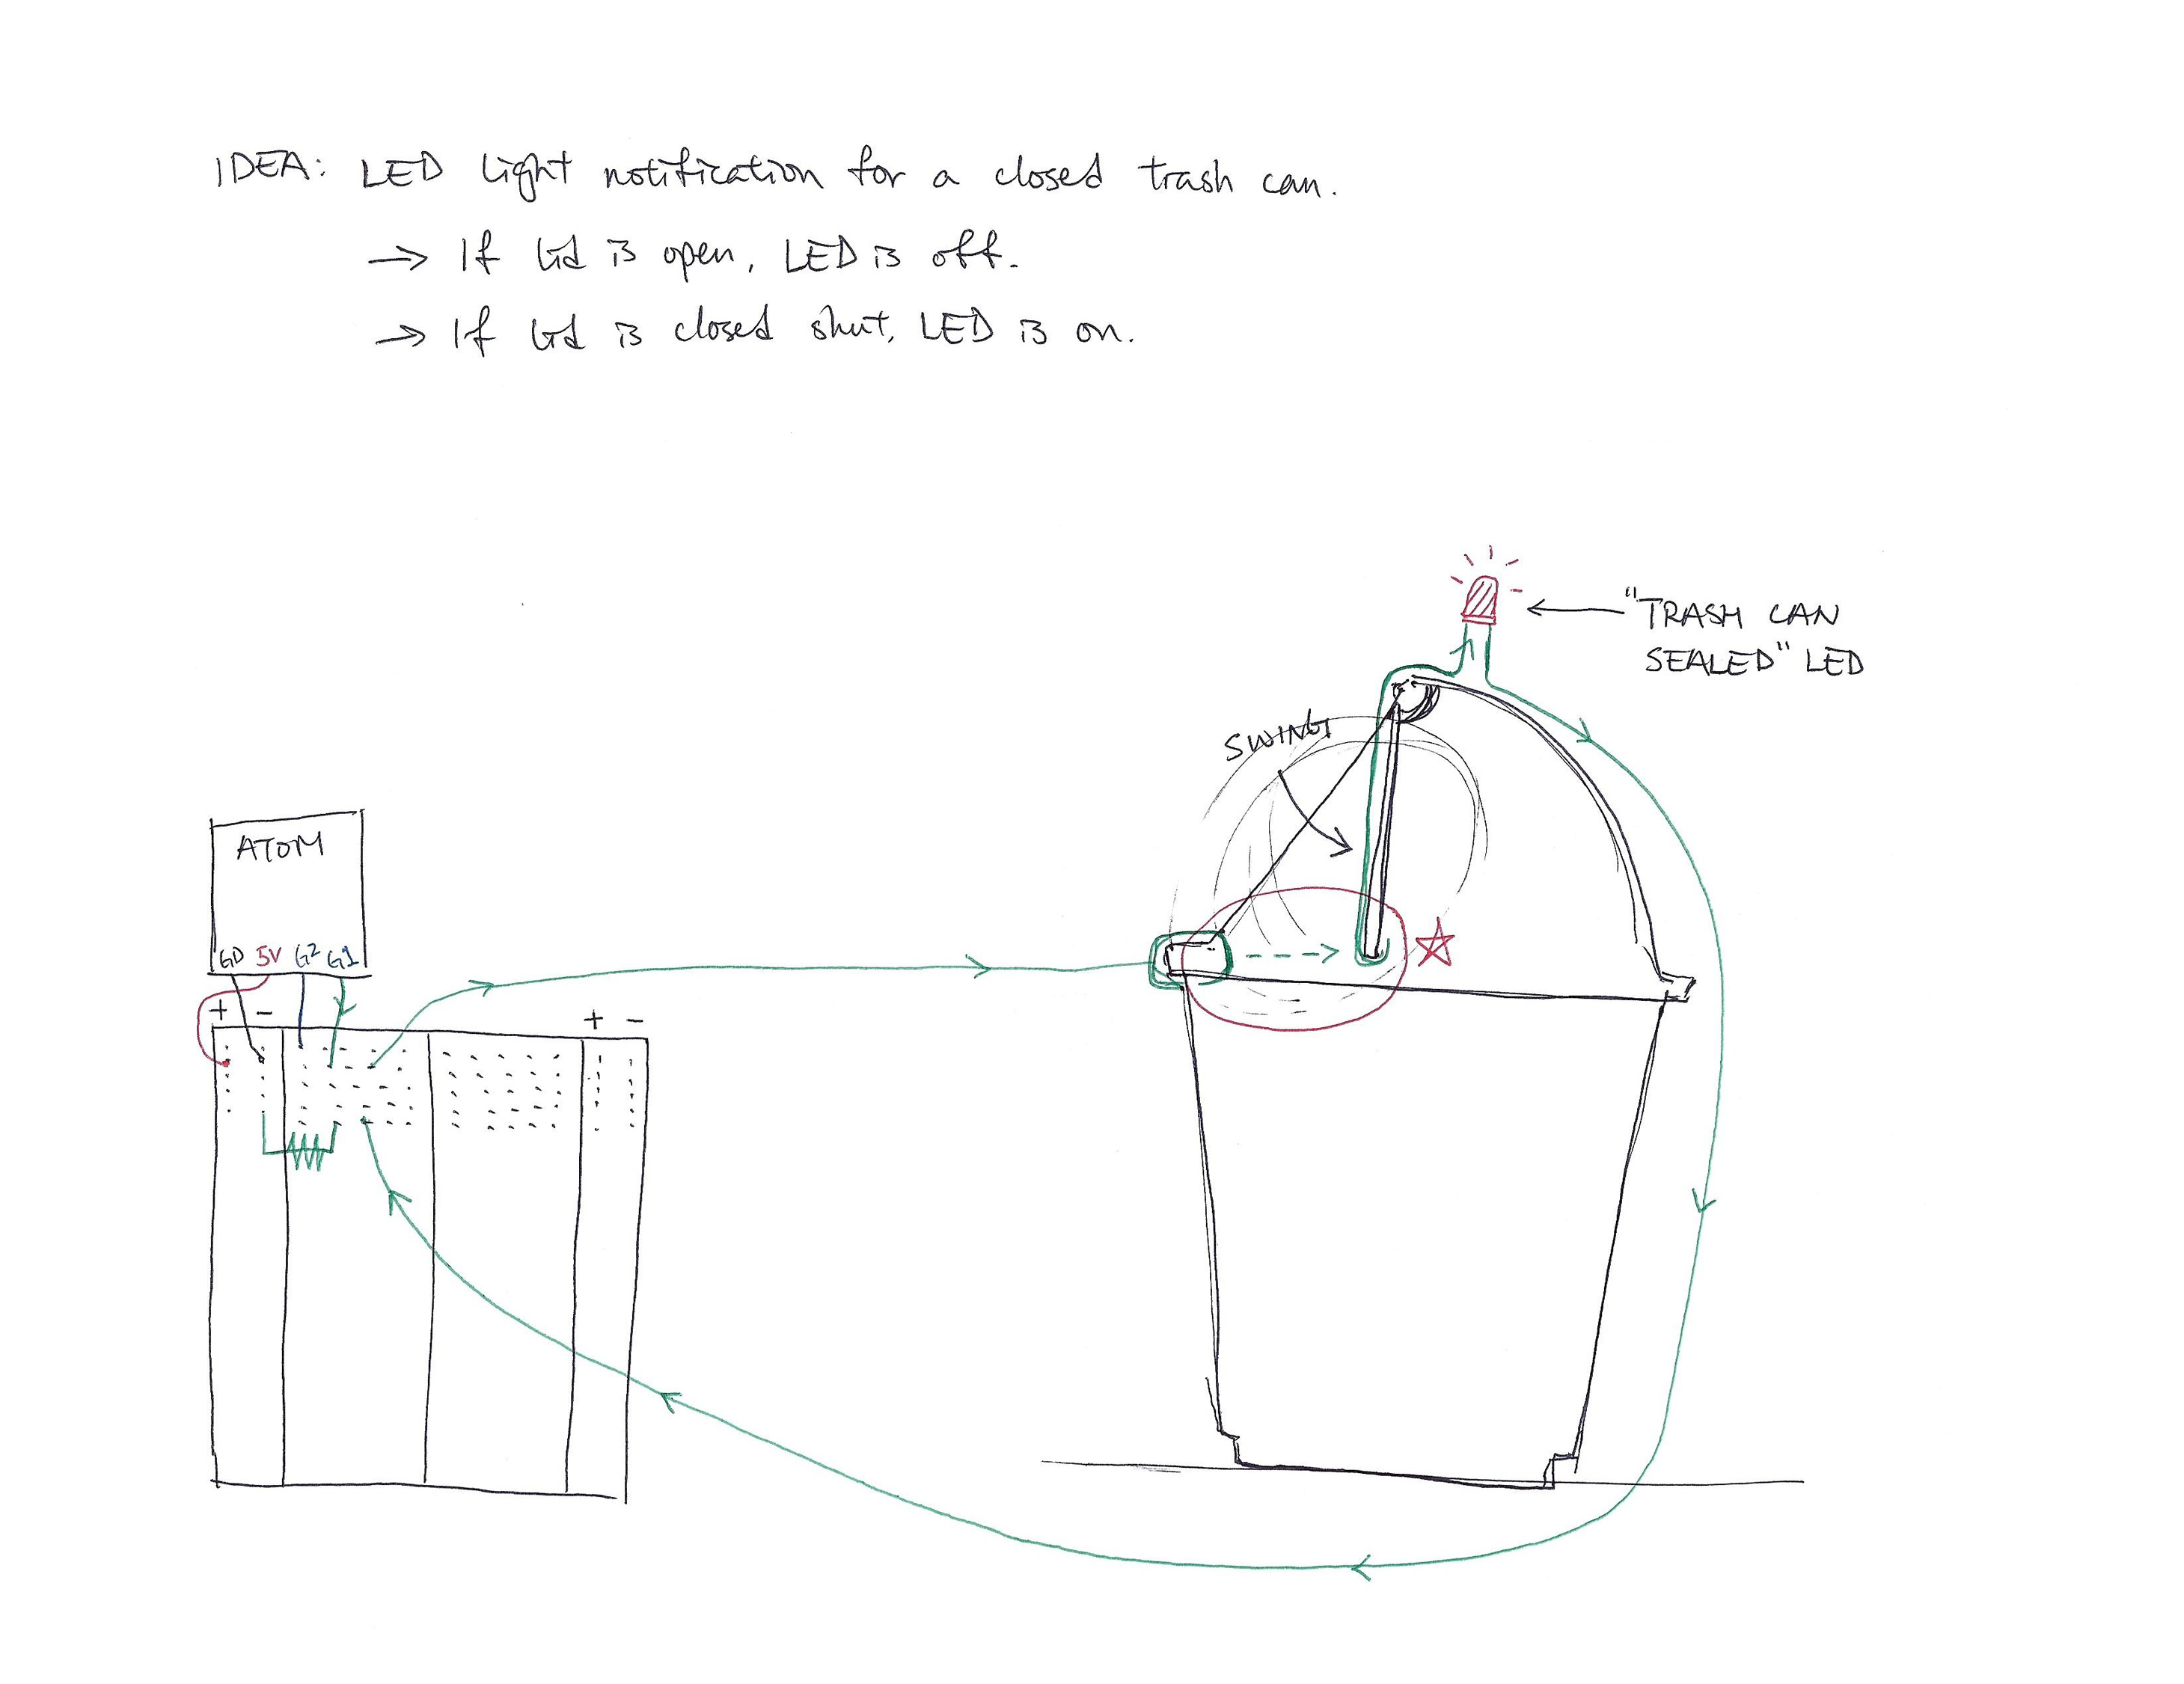 IDEA: LED light notification for a closed trash can.
→ If lid is open, LED is off.
→ If lid is closed shut, LED is on.
"TRASH CAN
SEALED" LED
SWING
ATOM
GD 5V G2 G1
+ -
+ -